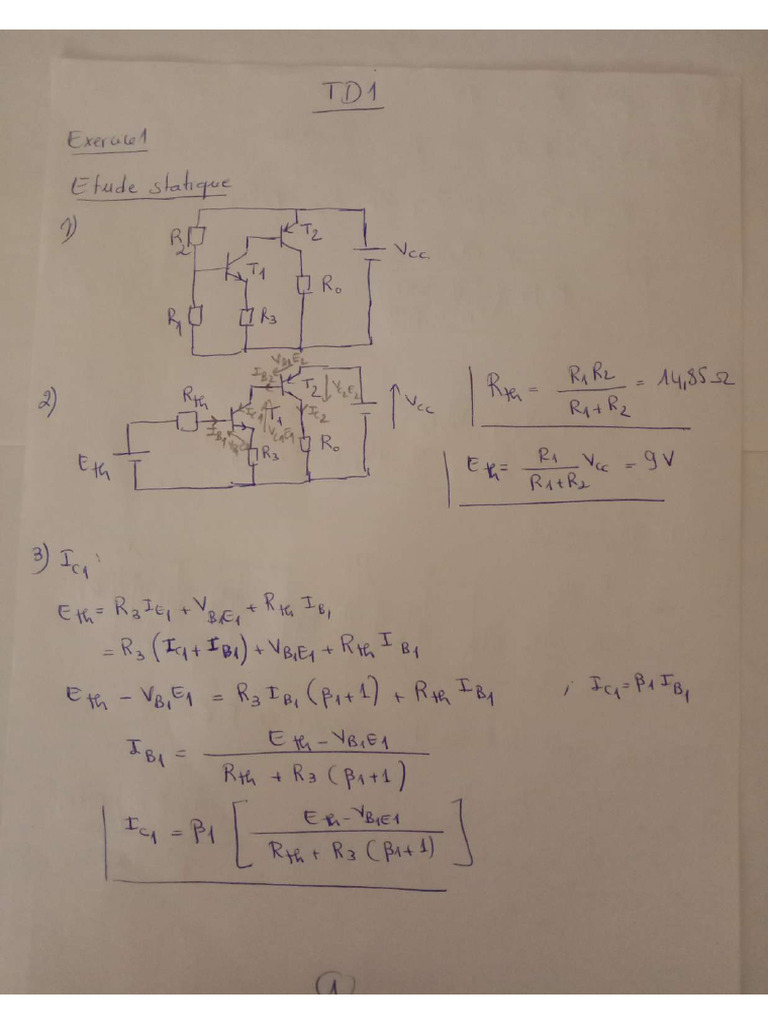 TD1
Exercice 1
Etude statique
1)
R2
T2
Vcc
T1
R0
R1
R3
2)
Rth
IB2
VB2E2
T2
VCC
IC1
T1
IC2
IB1
VC1E1
R0
R3
Eth
Rth = R1 R2 / R1 + R2 = 14,85Ω
Eth = R1 / R1+R2 Vcc = 9V
3) IC1 :
Eth = R3 IE1 + VB1E1 + Rth IB1
= R3 (IC1 + IB1) + VB1E1 + Rth IB1
Eth - VB1E1 = R3 IB1 (β1+1) + Rth IB1 ; IC1 = β1 IB1
IB1 = Eth - VB1E1 / Rth + R3 (β1+1)
IC1 = β1 [ Eth - VB1E1 / Rth + R3 (β1+1) ]
1